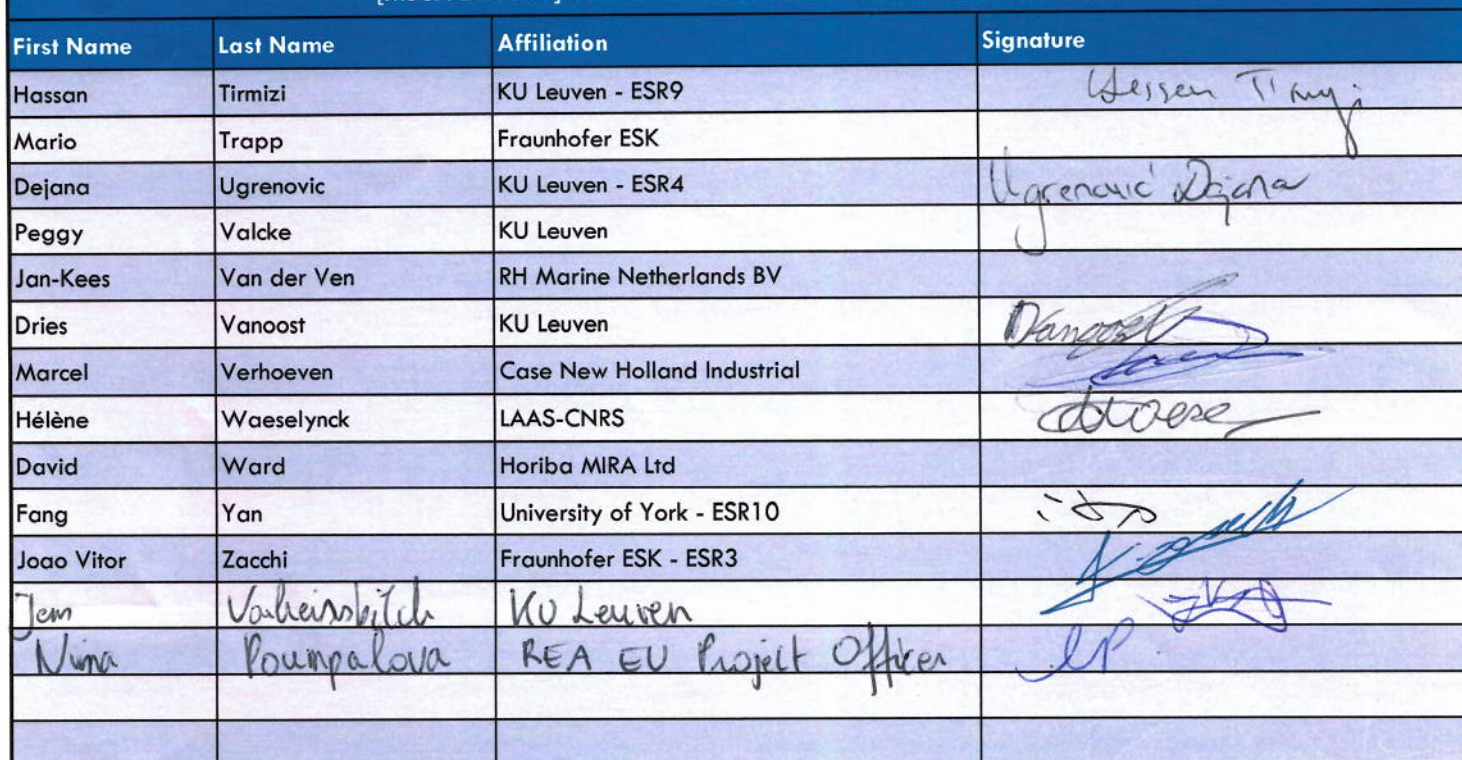 First Name Last Name Affiliation Signature
Hassan Tirmizi KU Leuven - ESR9
Mario Trapp Fraunhofer ESK
Dejana Ugrenovic KU Leuven - ESR4 Ugrenović Dejana
Peggy Valcke KU Leuven
Jan-Kees Van der Ven RH Marine Netherlands BV
Dries Vanoost KU Leuven Vanoost
Marcel Verhoeven Case New Holland Industrial
Hélène Waeselynck LAAS-CNRS
David Ward Horiba MIRA Ltd
Fang Yan University of York - ESR10
Joao Vitor Zacchi Fraunhofer ESK - ESR3
KU Leuven
REA EU Project Officer